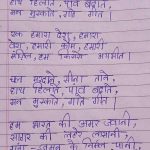 हाथ हिलाते, पाँव बढ़ाते,
मन मुस्काते, गाते गीत।
एक हमारा देश, हमारा
वेश, हमारी कौम, हमारी
मंज़िल, हम किससे भयभीत।
चल मरदाने, सीना ताने,
हाथ हिलाते, पाँव बढ़ाते,
मन मुस्काते, गाते गीत।
हम भारत की अमर जवानी,
सागर की लहरें लासानी,
गंग-जमुन के निर्मल पानी,